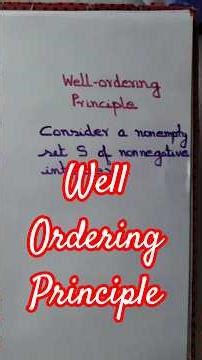 Well-ordering
Principle
Consider a nonempty
set S of nonnegative
Well
Ordering
Principle